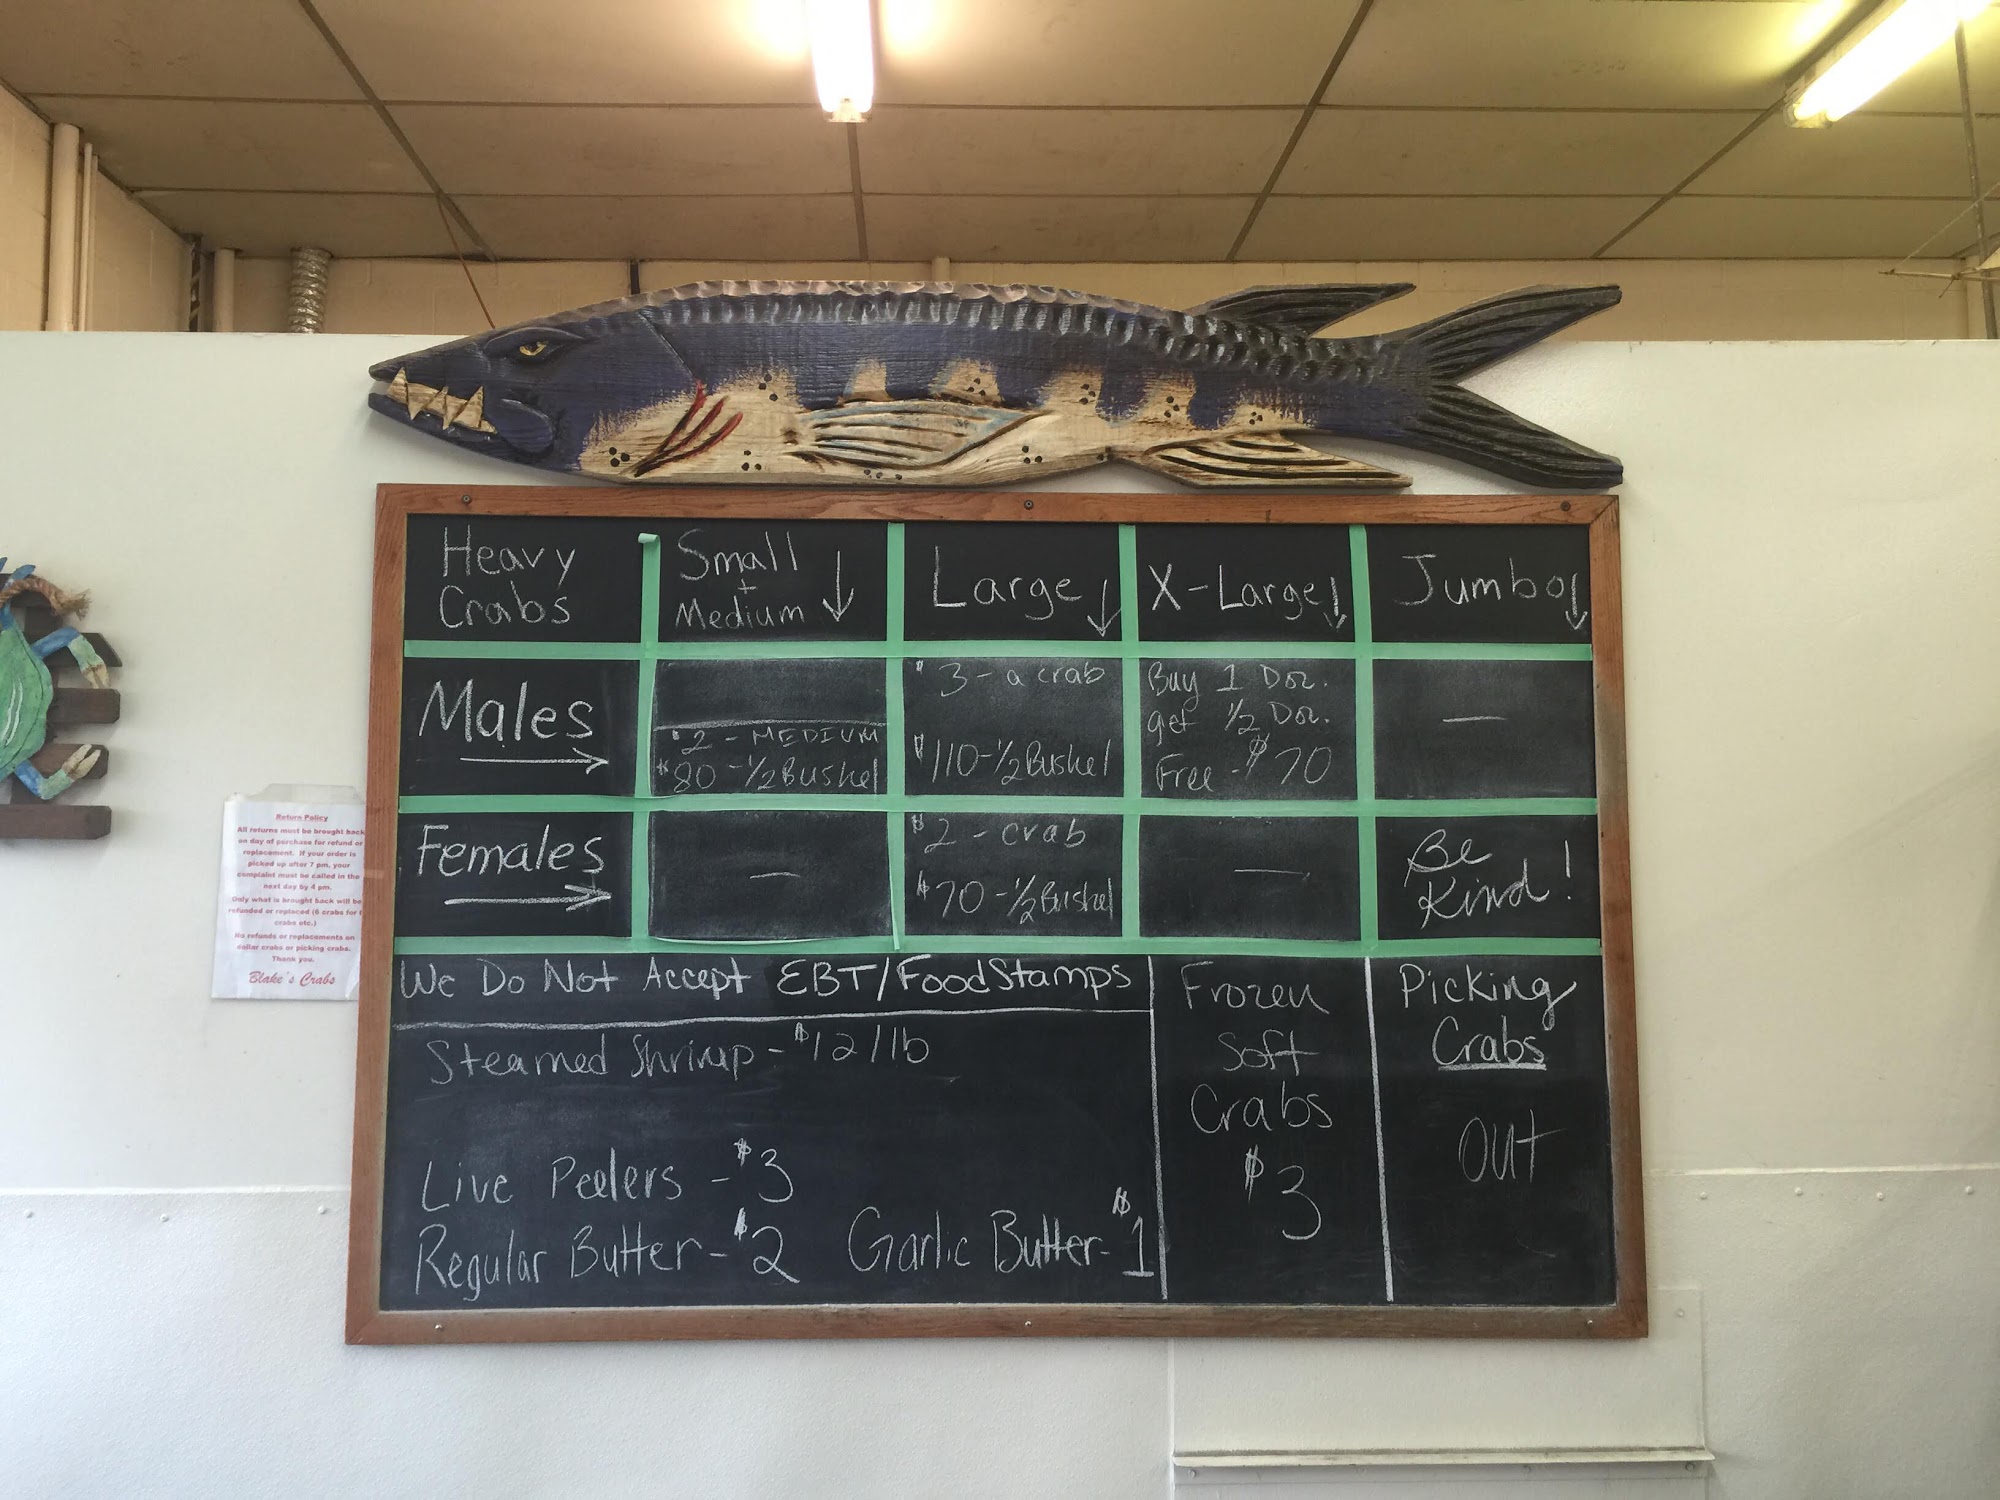 Heavy
Crabs
Small
+
Medium
Large
X-Large
Jumbo
Males
$2 - MEDIUM
$80 - 1/2 Bushel
$3 - a crab
$110 - 1/2 Bushel
Buy 1 Doz.
get 1/2 Doz.
Free - $70
—
Females
—
$2 - crab
$70 - 1/2 Bushel
—
Be
Kind!
We Do Not Accept EBT/FoodStamps
Steamed Shrimp - $12/lb
Live Peelers - $3
Regular Butter - $2 Garlic Butter - $1
Frozen
Soft
Crabs
$3
Picking
Crabs
OUT
Return Policy
All returns must be brought back
on day of purchase for refund or
replacement. If your order is
picked up after 7 pm, your
complaint must be called in the
next day by 4 pm.
Only what is brought back will be
refunded or replaced (6 crabs for
crabs etc.)
No refunds or replacements on
dollar crabs or picking crabs.
Thank you.
Blake's Crabs